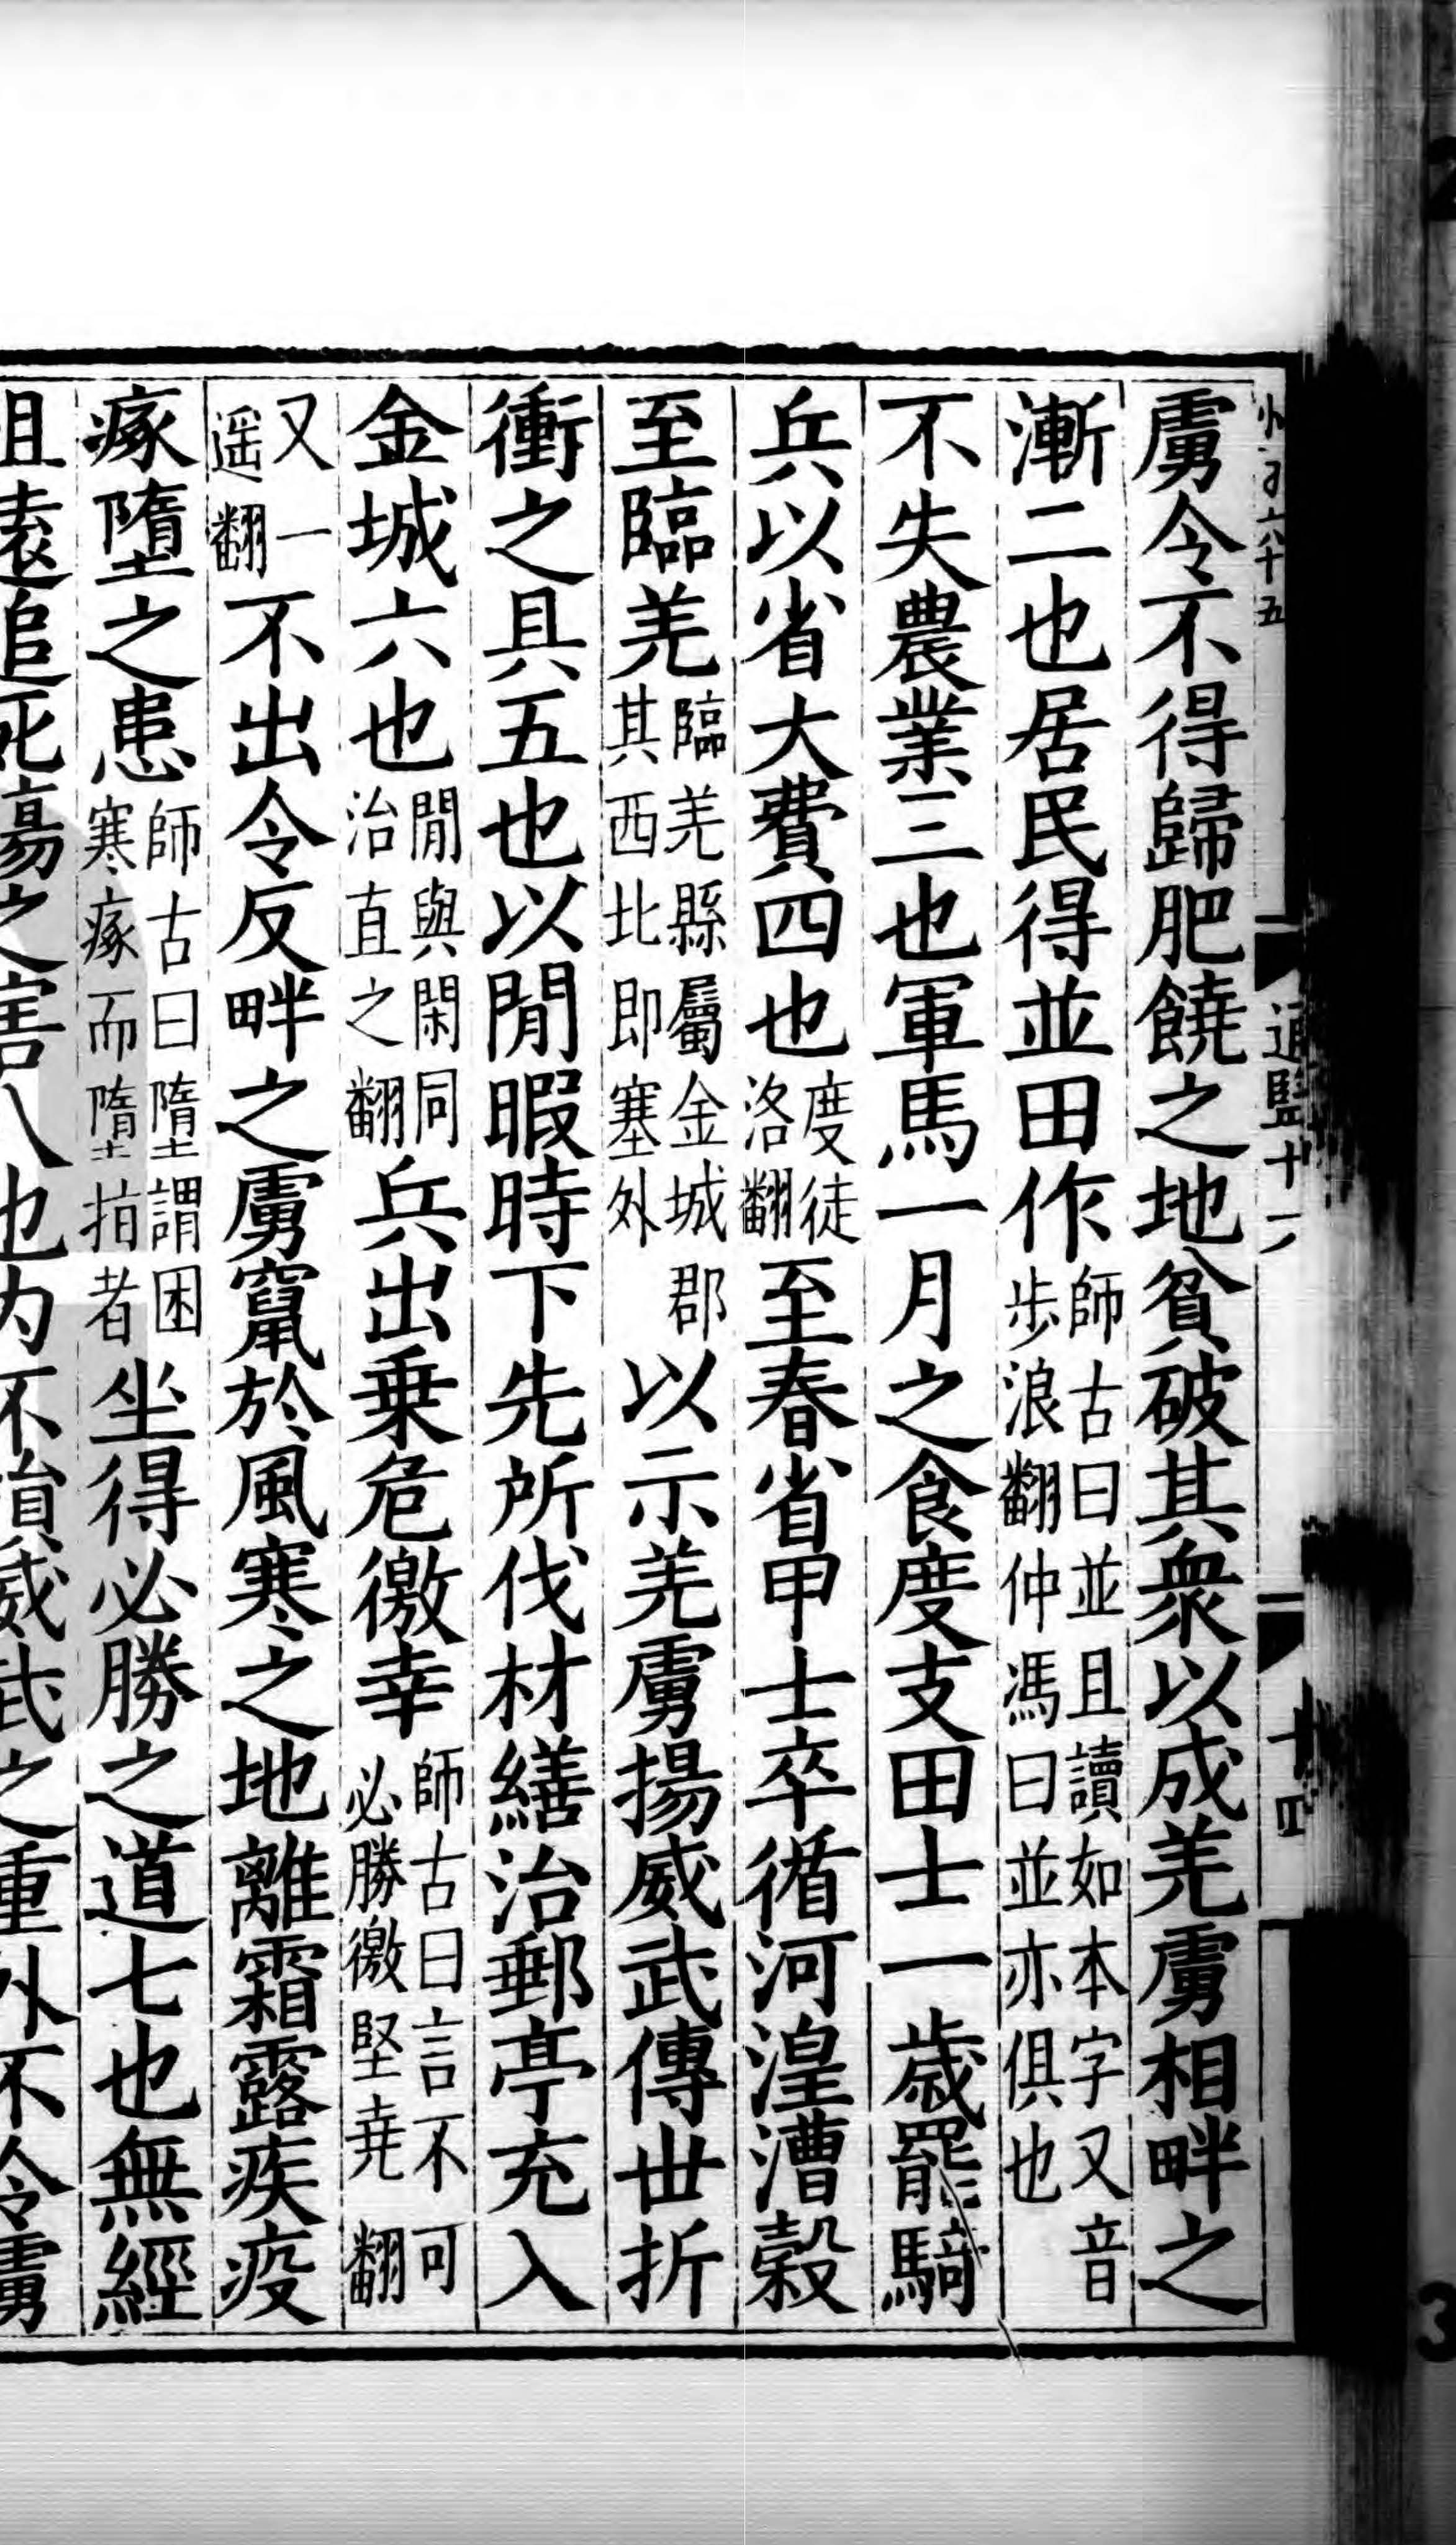 虜令不得歸肥饒之地貧破其衆以成羌虜相畔之
漸二也居民得並田作師古曰並且讀如本字又音步浪翻仲馮曰並亦俱也
不失農業三也軍馬一月之食度支田士一歲罷騎
兵以省大費四也度徒洛翻至春省甲士卒循河湟漕穀
至臨羌臨羌縣屬金城郡其西北即塞外以示羌虜揚威武傳世折
衝之具五也以閒暇時下先所伐材繕治郵亭充入
金城六也閒與閑同治直之翻兵出乗危徼幸師古曰言不可必勝徼堅堯翻
又一遥翻不出令反畔之虜竄於風寒之地離霜露疾疫
瘃墮之患師古曰墮謂困寒瘃而墮指者坐得必勝之道七也無經
阻遠追死傷之害八也内不損威武之重外不令虜
六十五
通鑑
十四